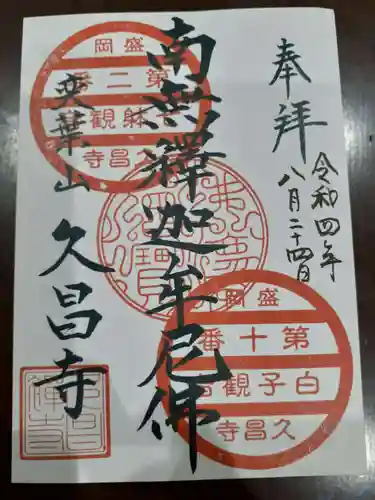 奉拝
令和四年
八月二十四日
南無釋迦牟尼佛
久昌寺
盛岡
第二番
久昌寺
盛岡
第十番
白子観音
久昌寺